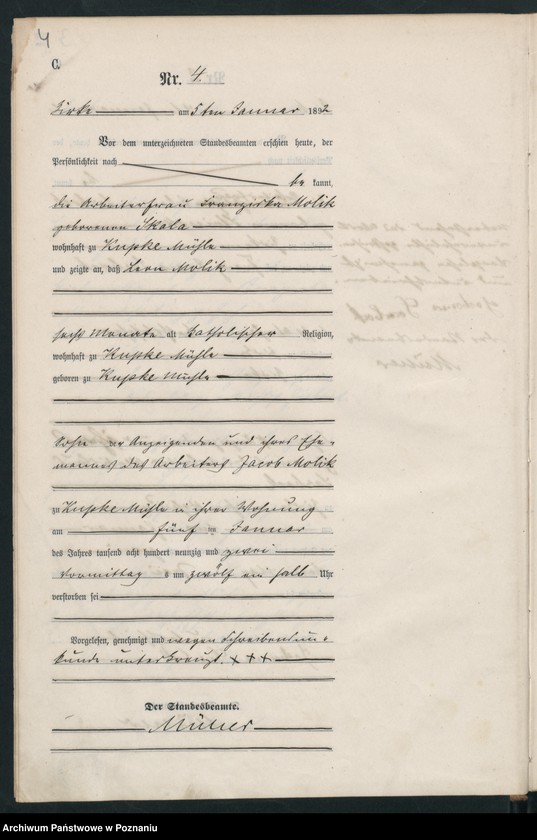 4
C.
Nr. 4.
Zirke am 5ten Januar 1892
Vor dem unterzeichneten Standesbeamten erschien heute, der
Persönlichkeit nach
be kannt,
die Arbeiterfrau Franziska Molik
geborenen Skala
wohnhaft zu Kupke Mühle
und zeigte an, daß Leon Molik
sechs Monate alt katholischer Religion,
wohnhaft zu Kupke Mühle
geboren zu Kupke Mühle
Sohn der Anzeigenden und ihres Ehe-
mannes des Arbeiters Jacob Molik
zu Kupke Mühle in ihrer Wohnung
am fünf ten Januar
des Jahres tausend acht hundert neunzig und zwei
Vormittag s um zwölf ein halb Uhr
verstorben sei
Vorgelesen, genehmigt und wegen Schreibensun-
kunde unterkreuzt. + + +
Der Standesbeamte.
Müller
Archiwum Państwowe w Poznaniu